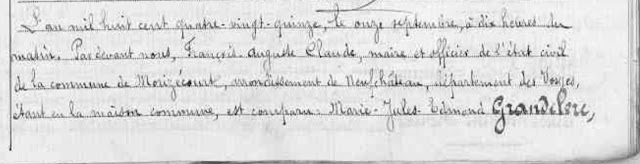 L'an mil huit cent quatre-vingt-quinze, le onze septembre, à dix heures du
matin. Par devant nous, François Auguste Claude, maire et officier de l'état civil
de la commune de Morizécourt, arrondissement de Neufchâteau, département des Vosges,
étant en la maison commune, est comparu: Marie-Jules-Edmond Grandclerc,